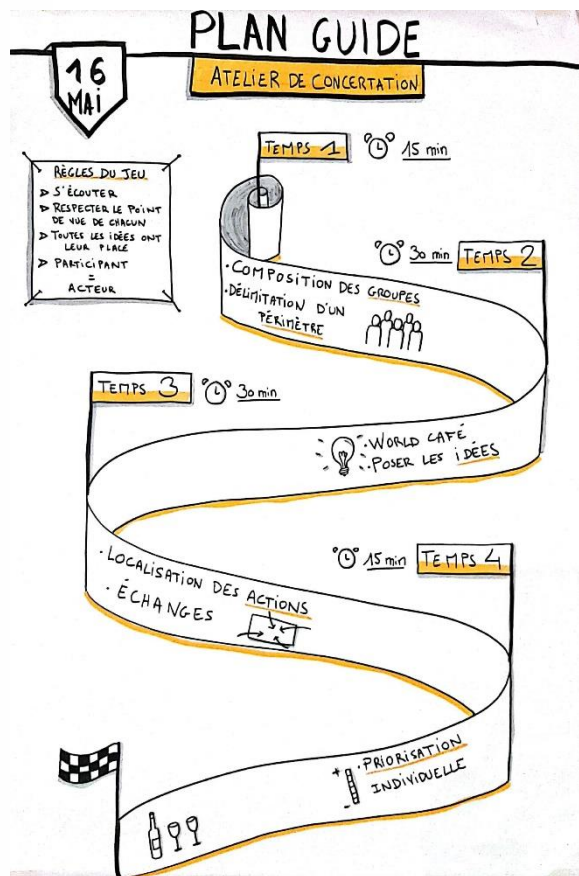 PLAN GUIDE
16
MAI
ATELIER DE CONCERTATION
TEMPS 1
15 min
RÈGLES DU JEU
S'ÉCOUTER
RESPECTER LE POINT
DE VUE DE CHACUN
TOUTES LES IDÉES ONT
LEUR PLACE
PARTICIPANT
=
ACTEUR
30 min
TEMPS 2
· COMPOSITION DES GROUPES
· DÉLIMITATION D'UN
PÉRIMÈTRE
TEMPS 3
30 min
· WORLD CAFÉ
· POSER LES IDÉES
15 min
TEMPS 4
· LOCALISATION DES ACTIONS
· ÉCHANGES
· PRIORISATION
INDIVIDUELLE
+
-